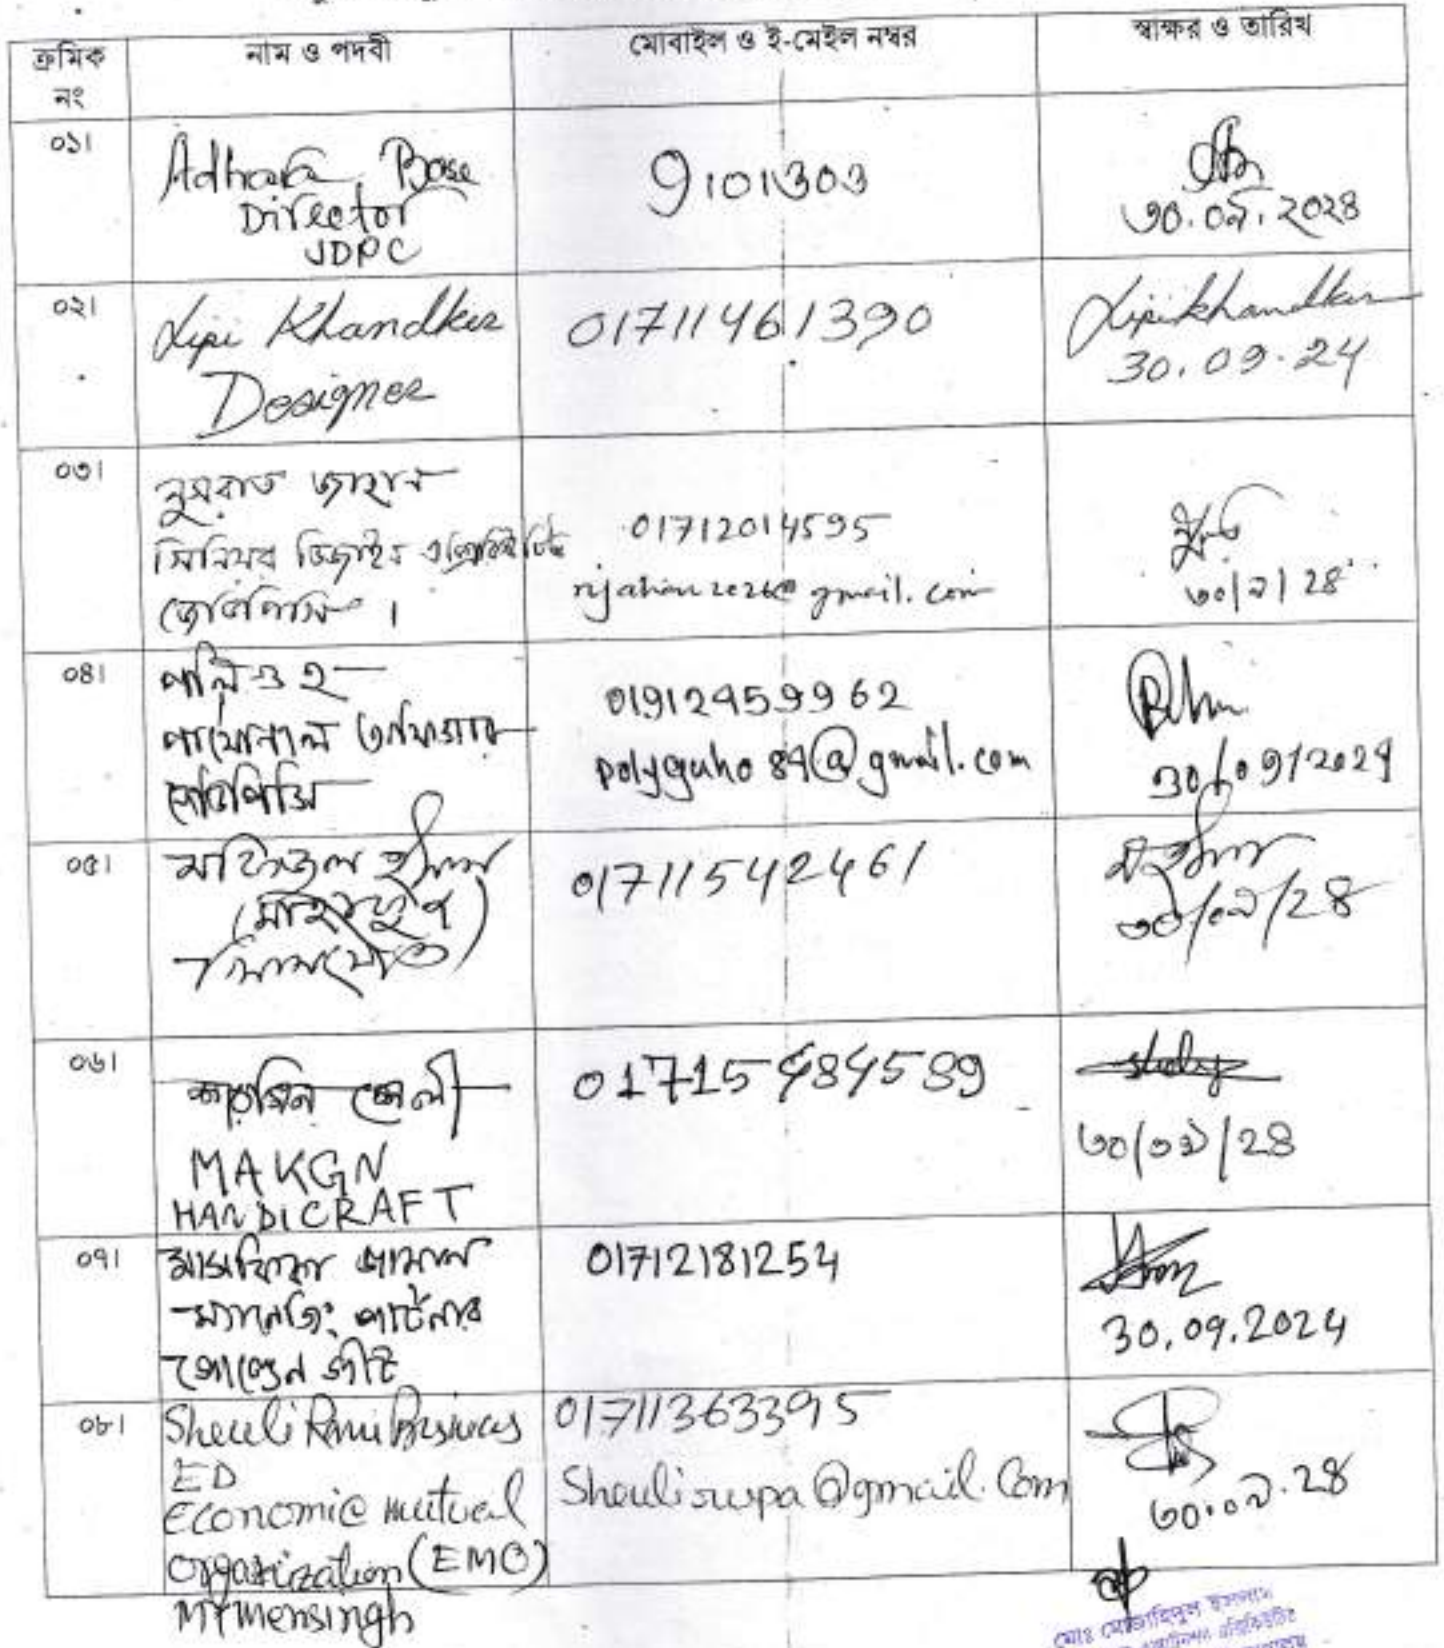 ক্রমিক নং
নাম ও পদবী
মোবাইল ও ই-মেইল নম্বর
স্বাক্ষর ও তারিখ
০১।
Adhara Bose
Director
JDPC
9101303
৩০.০৯.২০২৪
০২।
Lipi Khandker
Designer
01711461390
Lipikhandker
30.09.24
০৩।
নুসরাত জাহান
সিনিয়র ডিজাইন
জেডিপিসি।
01712014595
@gmail.com
৩০/৯/২৪
০৪।
পলি গুহ
পার্সোনাল অফিসার
জেডিপিসি
01912459962
polyguho84@gmail.com
30/09/2024
০৫।
01711542461
৩০/০৯/২৪
০৬।
শারমিন শেলী
MAKGN
HANDICRAFT
01715484589
৩০/০৯/২৪
০৭।
জামাল
ম্যানেজিং পার্টনার
গোল্ডেন জুট
01712181254
30.09.2024
০৮।
Sheuli Rani Busiwas
ED
Economic mutual
organization (EMO)
Mymensingh
01711363395
@gmail.com
৩০.০৯.২৪